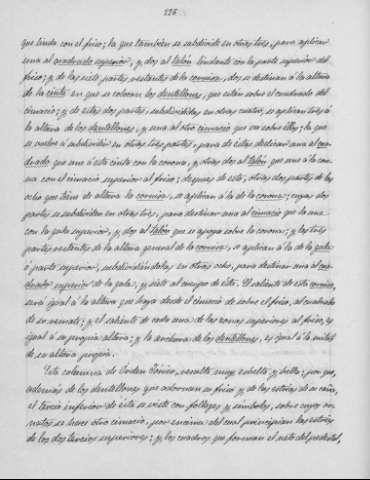 226
que linda con el friso; la que tambien se subdivide en otras tres, para aplicar
una al cuadrado superior, y dos al talón lindante con la parte superior del
friso; y de las siete partes restantes de la cornisa, dos se destinan á la altura
de la cinta en que se colocan los dentellones, que están sobre el cuadrado del
cimacio; y de estas dos partes, subdivididas en otras cuatro, se aplican tres á
la altura de los dentellones, y una al otro cimacio que va sobre ellos; la que
se vuelve á subdividir en otras tres partes, para de estas destinar una al cua-
drado que une á esta cinta con la corona, y otras dos al talón que une á la coro-
na con el cimacio superior al friso; despues de esto, otras dos partes de las
ocho que tiene de altura la cornisa, se aplican á la de la corona; cuyas dos
partes se subdividen en otras tres, para destinar una al cimacio que la une
con la gola superior, y dos al talón que se apoya sobre la corona; y las tres
partes restantes de la altura general de la cornisa, se aplican á la de la gola
ó parte superior, subdividiéndolas en otras ocho, para destinar una al cua-
drado superior de la gola, y siete al cuerpo de esta. El saliente de esta cornisa,
será igual á la altura que haya desde el cimacio de sobre el friso, al cuadrado
de su remate; y el saliente de cada una de las zonas superiores al friso, es
igual á su propia altura; y la anchura de los dentellones, es igual á la mitad
de su altura propia.
Esta columna de Orden Jónico, resulta muy esbelta y bella; por que,
además de los dentellones que adornan su friso y de las estrías de su caña,
el tercio inferior de ésta se viste con follages y símbolos, sobre cuyos or-
natos se hace otro cimacio, por encima del cual principian las estrías
de los dos tercios superiores; y los cuadros que forman el neto del pedestal,